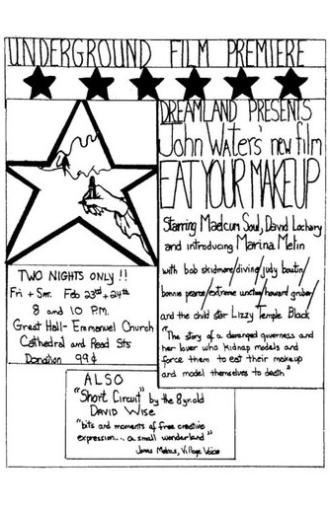 UNDERGROUND FILM PREMIERE
DREAMLAND PRESENTS
John Waters' new film
EAT YOUR MAKEUP
Starring Maelcum Soul, David Lochary
and introducing Marina Melin
with bob skidmore/divine/judy boutin/
bonnie pearce/extreme unction/howard gruber/
and the child star Lizzy Temple Black
"The story of a deranged governess and
her lover who kidnap models and
force them to eat their makeup
and model themselves to death"
TWO NIGHTS ONLY !!
Fri + Sat. Feb 23rd + 24th
8 and 10 P.M.
Great Hall - Emmanuel Church
Cathedral and Read Sts
Donation 99¢
ALSO
"Short Circuit" by the 8yr.old
DAVID WISE
"bits and moments of free creative
expression... a small wonderland"
Jonas Mekas, Village Voice